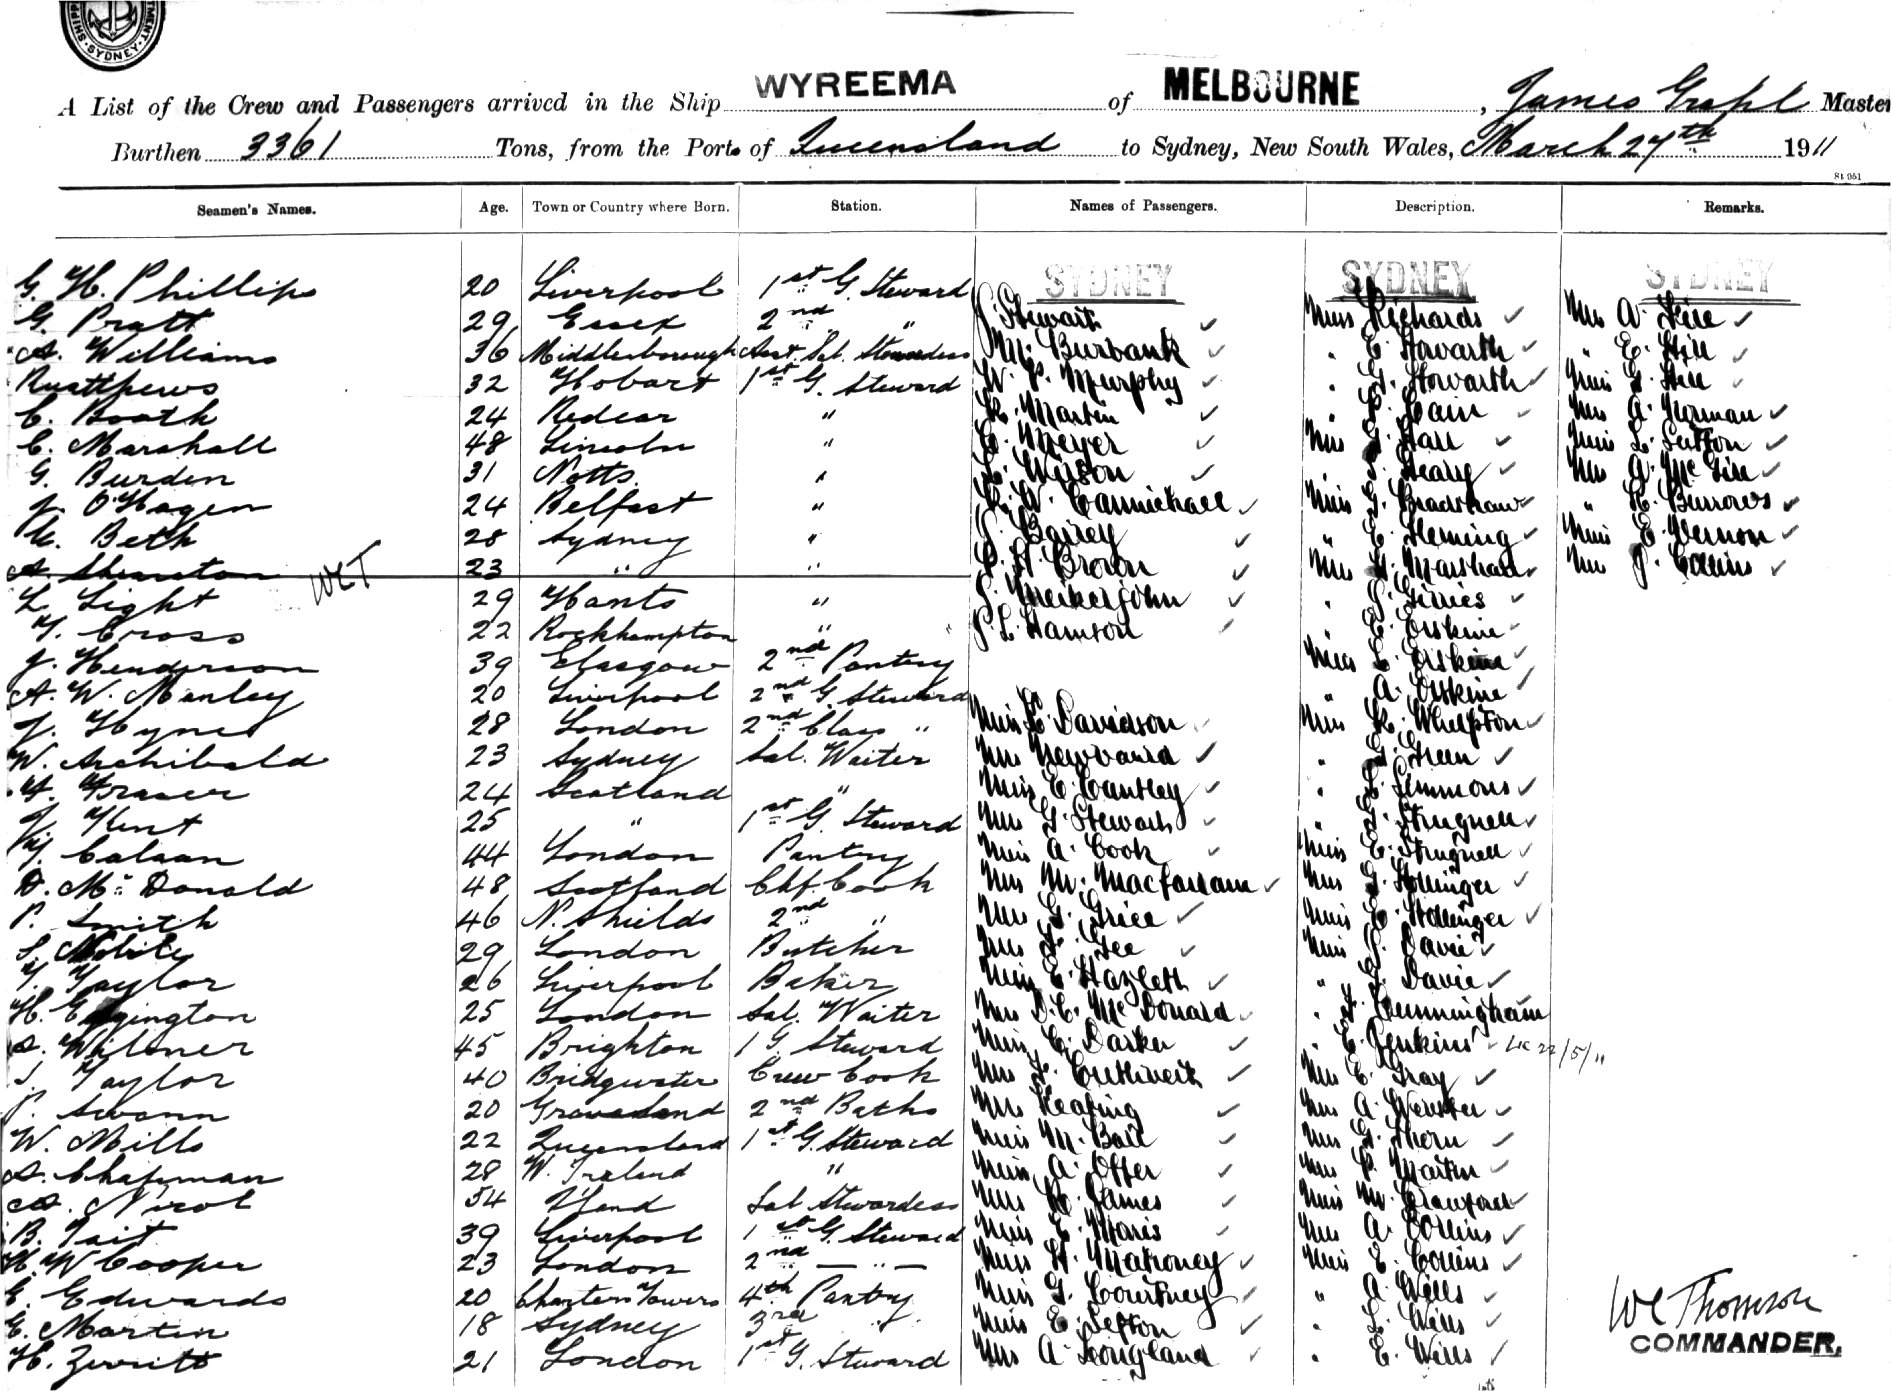 SHIPP MENT. SYDNEY
WYREEMA MELBOURNE
A List of the Crew and Passengers arrived in the Ship WYREEMA of MELBOURNE, James Grahl Master
Burthen 3361 Tons, from the Ports of Queensland to Sydney, New South Wales, March 27th 1911
St 951
Seamen's Names. Age. Town or Country where Born. Station. Names of Passengers. Description. Remarks.
SYDNEY SYDNEY SYDNEY
G. H. Phillips 20 Liverpool 1st G. Steward
G. Pratt 29 Essex 2nd " J. Stewart Miss Richards Mrs A. Hill
A. Williams 36 Middlesborough Asst. Sal. Stewardess M. Burbank " E. Howarth " E. Hill
Matthews 32 Hobart 1st G. Steward W. P. Murphy " G. Howarth Miss G. Hill
C. Booth 24 Redcar " Martin " Cain Mrs A. Gorman
C. Marshall 48 Lincoln " C. Meyer Hall Miss L. Sutton
G. Burden 31 Notts. " Wilson " Mrs A. McGill
J. O'Hagen 24 Belfast " W. Carmichael Miss Bradshaw " Burrows
Beth 28 Sydney " J. Bailey " E. Fleming Miss E. Vernon
A. Sheraton WCT 23 " " Brown Mrs Marshall Mrs J. Collins
L. Light 29 Hants " J. Meiklejohn "
T. Cross 22 Rockhampton " Hamson " E. Erskine
J. Henderson 39 Glasgow 2nd Pantry Miss L. Erskine
A. W. Manley 20 Liverpool 2nd G. Steward " A. Erskine
J. Hynes 28 London 2nd Class " Miss Davidson Whelpton
W. Archibald 23 Sydney Sal. Waiter Mrs " Green
Fraser 24 Scotland " Miss E. Cantley " Simmons
Kent 25 " 1st G. Steward Mrs G. Stewart " Strugnell
Calaan 44 London Pantry Miss A. Cook Miss E. Strugnell
D. McDonald 48 Scotland Chf. Cook Mrs M. Macfarlane Mrs G. Hollinger
P. Smith 46 N. Shields 2nd " Mrs G. Grice Miss E. Hollinger
S. 29 London Butcher Mrs Gee Miss Davie
Taylor 26 Liverpool Baker Miss E. Hazleth " Davie
H. Egington 25 London Sal. Waiter Mrs D. C. McDonald " Cunningham
Wilmer 45 Brighton 1 G. Steward Miss C. Darker " E. Jenkins 22/5/11
Taylor 40 Bridgwater Crew Cook Mrs Mrs E. Gray
P. Swann 20 Gravesend 2nd Baths Mrs Keating Mrs A. Webster
W. Mills 22 Queensland 1st G. Steward Miss M. Ball Mrs G. Thorn
A. Chapman 28 W. Ireland " Miss A. Offer Mrs Martin
A. Nicol 54 Sal Stewardess Mrs James Miss M. Crawford
B. Tait 39 Liverpool 1st G. Steward Miss E. Morris Mrs A. Collins
H. W Cooper 23 London 2nd — " — Miss H. Mahoney Miss E. Collins
E. Edwards 20 Charters Towers 4th Pantry Miss G. Courtney " A. Wells
E. Martin 18 Sydney 3rd " Miss E. Sefton " L. Wells
H. Zerritt 21 London 1st G. Steward Mrs A. Longland " E. Wells
WC Thomson
COMMANDER.